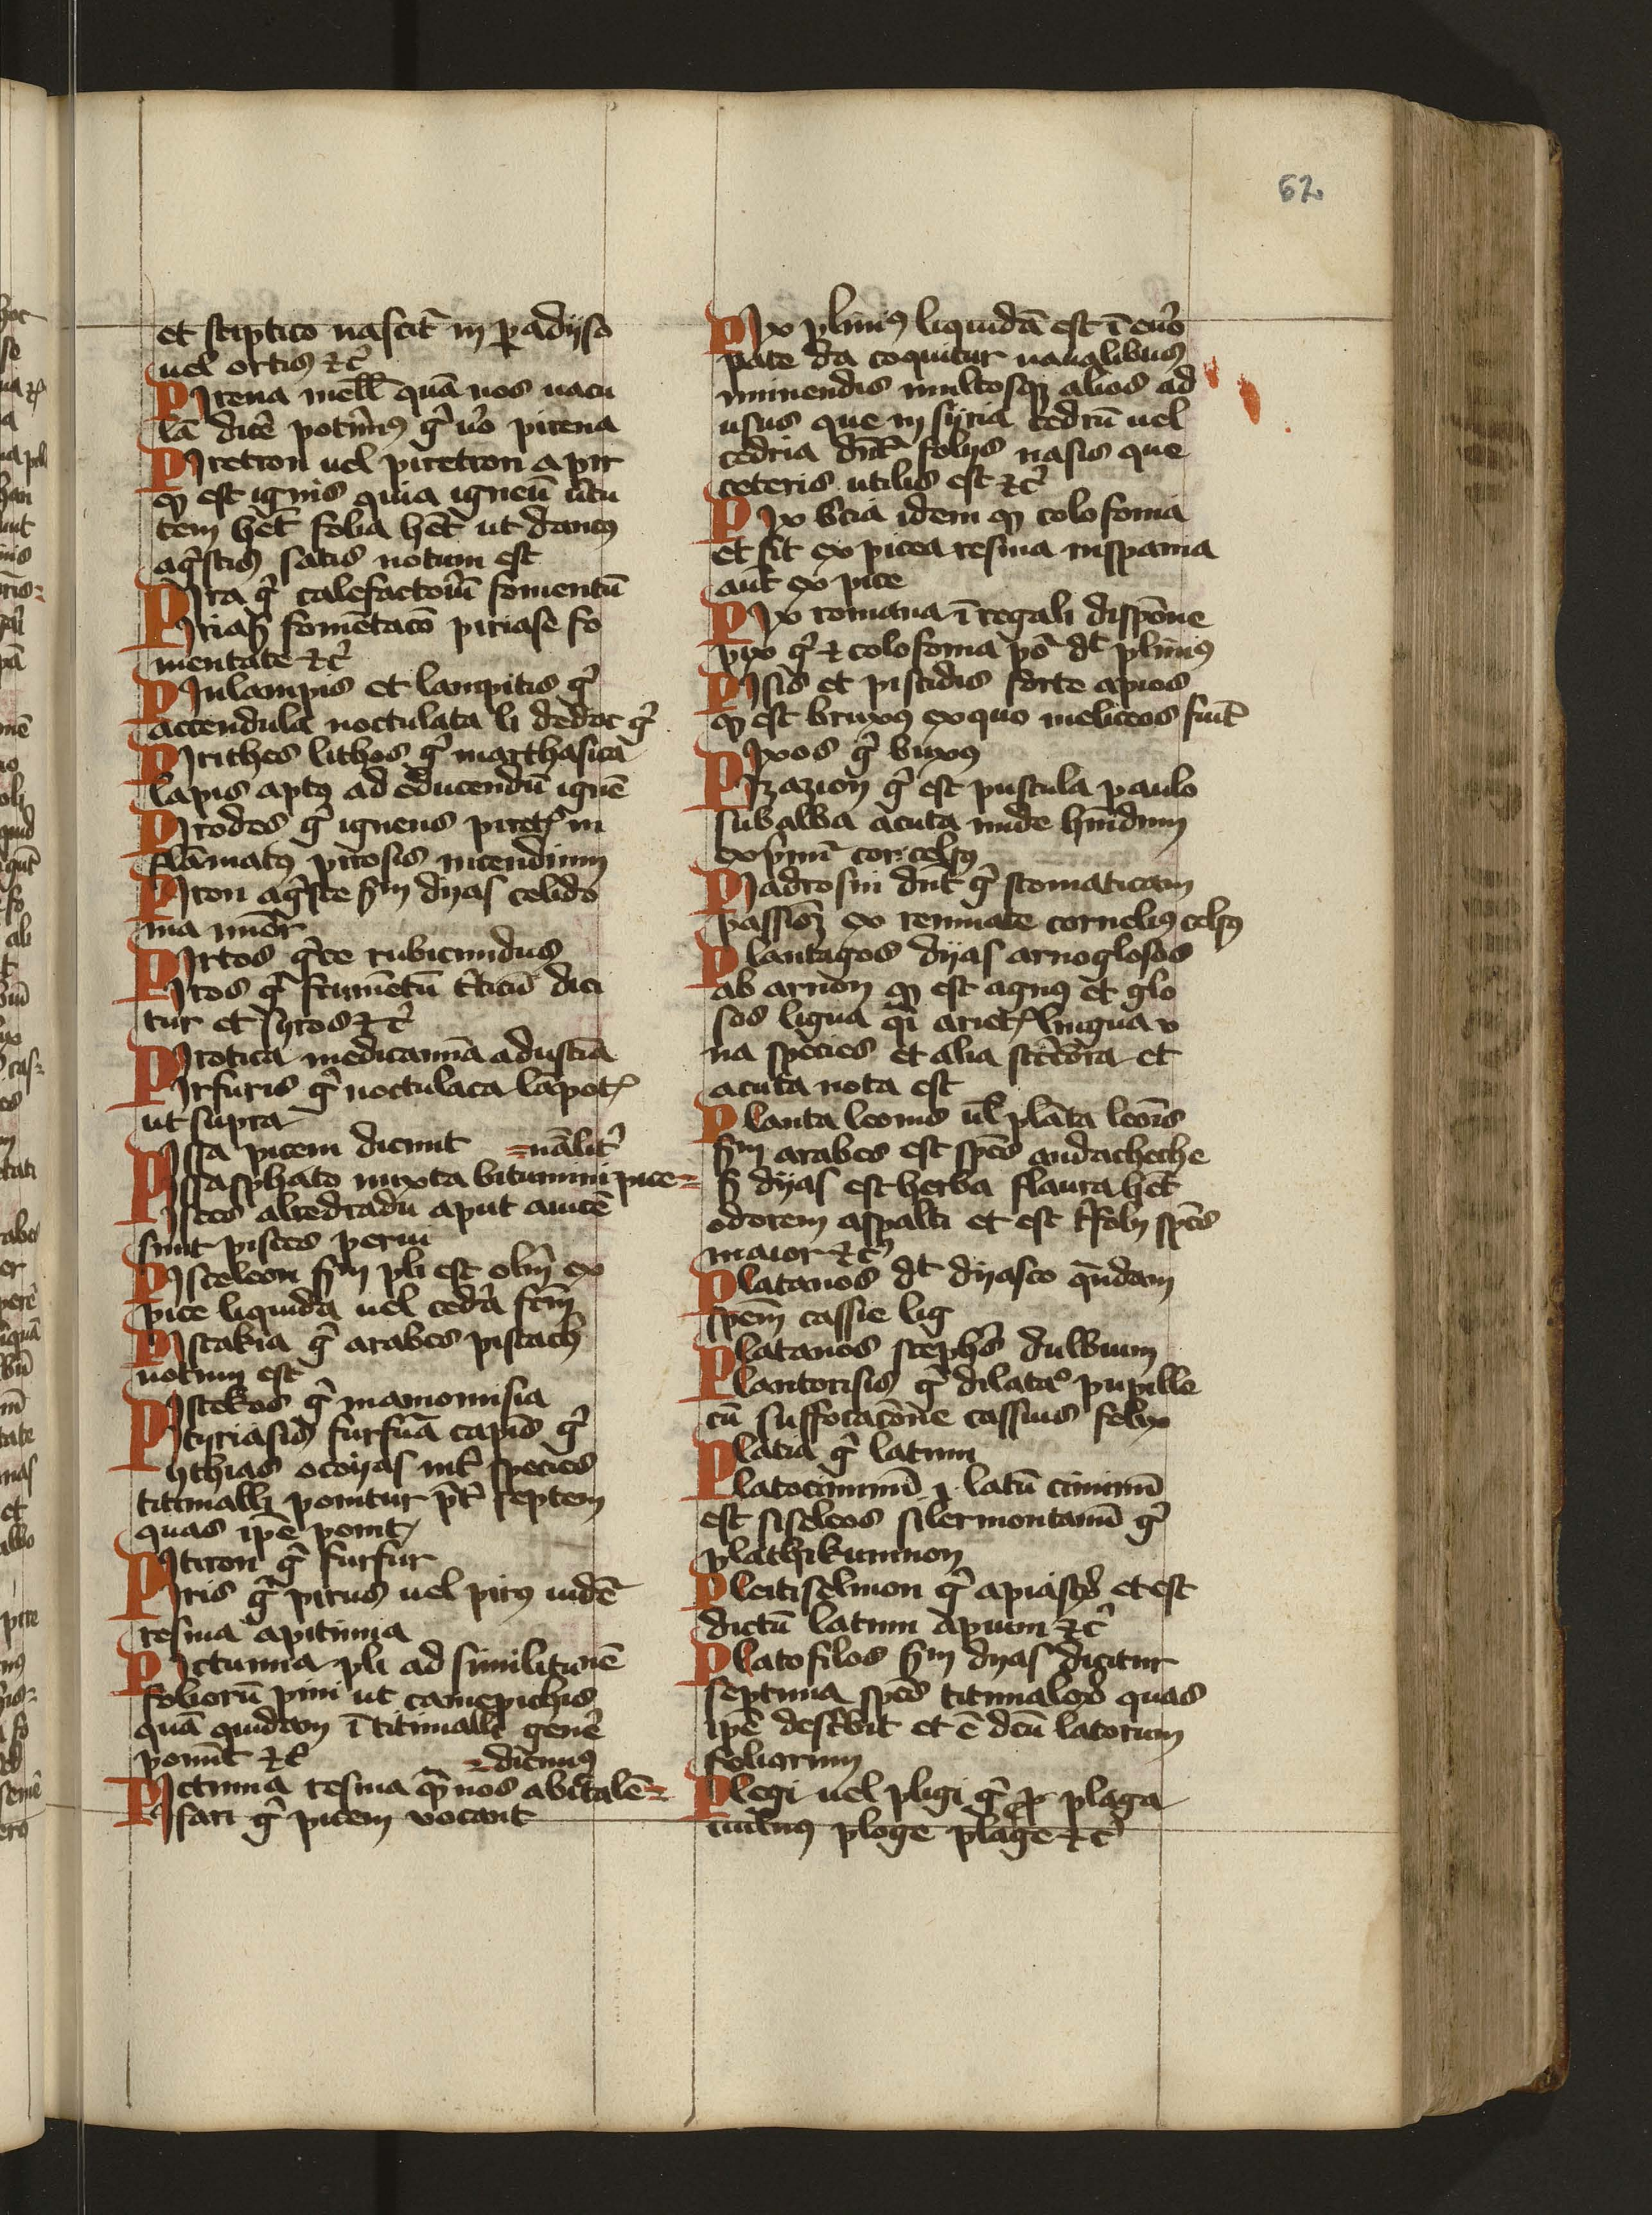 62
et stiptico nascit̄ in p̲adyso
uel ortis ⁊c̄
Pirena mell̄ quā nos nacu
lā dicē potim̄9 g̃ ūo pirena
Piretron uel piretron a pir
qꝫ est ignis quia igneū ūtu
tem hēt folia hēt ut danc9
agr̄stis satis notum est
Pira g̃ calefactoriū fomentū
Piriasꝭ fomētacō piriase fo
mentate ⁊c̄
Pirilampis et lampitis g̃
accendula noctulata li dedoc g̃
Pirithes lithos g̃ marthasita
lapis apt9 ad educendū ignē
Pirodes g̃ igneus piretꝭ in
flāmat9 pirosis incendium
Piron agr̄ste sm̄ dyas celido
nia minor̄
Pirtos gr̄ce rubicundus
Piros g̃ frumētū t̄ticū dici
tur et syros ⁊c̄
Pirotica medicamīa adustīa
Pirfuris g̃ noctulaca lāpotꝭ
ut supra
Pissa picem dicunt =nālit̄
Pissasphato mixta bitumini pice=
Pisces alredradū aput auicē
sunt pisces parui
Pisceleon sm̄ pli est olm̄ ex
pice liquida uel cedr̄a fcm̄
Pistakia g̃ arabes pistach
notum est
Pistekos g̃ mamonisia
Pityriasis furfuā capis g̃
Pythias ocoyas int̄ species
titimalli ponitur p̄t̄ septem
quas ipē ponitꝭ
Pitiron g̃ furfur
Piris g̃ pirus uel pit9 indē
resina apitinia
Pictunia pli ad similitu9ē
foliorū pini ut camepithis
quā quidam ī titimalli genē
ponūt ⁊c̄ =dicim9
Pictinia resina q̄m nos abietalē=
Pisari g̃ picem vocant
Pix plini9 liquidā est ī euro
pate da coquitur naualibus
muniendis multosqꝫ alios ad
usus que in syria cedrū uel
cedria dn̄t folijs nasis que
ceteris utilis est ⁊c̄
Pix b̄cia idem qꝫ colofonia
et fit ex picea resina inspania
aut̄ ex pice
Pix romana ī regali dispōne
pix g̃ ⁊ colofonia pō dt plini9
Pisis et piscidis forte apios
qꝫ est brux9 ex quo meliceos fiūt
Pixos g̃ bux9
Pizazion g̃ est pustula paulo
subalba acuta unde humidum
exprim̄ cor. cels9
Piadrosin dn̄t g̃ stomaticam
passioꝫ ex reumate corneli9 cels9
Plantagos dyas arnoglosos
ab arnon qꝫ est agn9 et glo
sos ligua q̄i arietꝭ lingua v
na species et alia strictiora et
acuta nota est
Planta leonis ul̄ plāta leōis
sm̄ arabes est spēs audacheche
s̄ dyas est herba flaura hēt
odorem aspalti et est t̄folij spēs
maior ⁊c̄
Platanos dt dyasco quandam
spēm cassie lig
Platanos steph̄s dulbium
Plantorisis g̃ dilatac̄ pupille
cū suffocacōne cassius felix
Platia g̃ latum
Platociminū .i. latū ciminū
est siseleos silermontanū g̃
plathikuminon
Pleitiselinon g̃ apiastꝝ et est
dictū latum apium ⁊c̄
Platofilos sm̄ dyas dicitur
septima spēs titimaloꝝ quas
ipē descr̄bit et ē dcū latorum
foliorum
Plegi uel pligi g̃ ꝓ plaga
ploge plage ⁊c̄